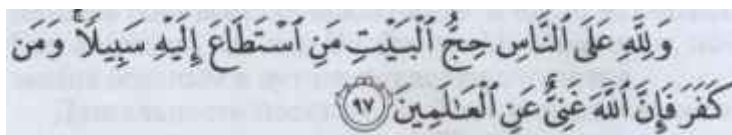 وَلِلَّهِ عَلَى ٱلنَّاسِ حِجُّ ٱلْبَيْتِ مَنِ ٱسْتَطَاعَ إِلَيْهِ سَبِيلًا ۚ وَمَن
كَفَرَ فَإِنَّ ٱللَّهَ غَنِىٌّ عَنِ ٱلْعَـٰلَمِينَ ۝٩٧